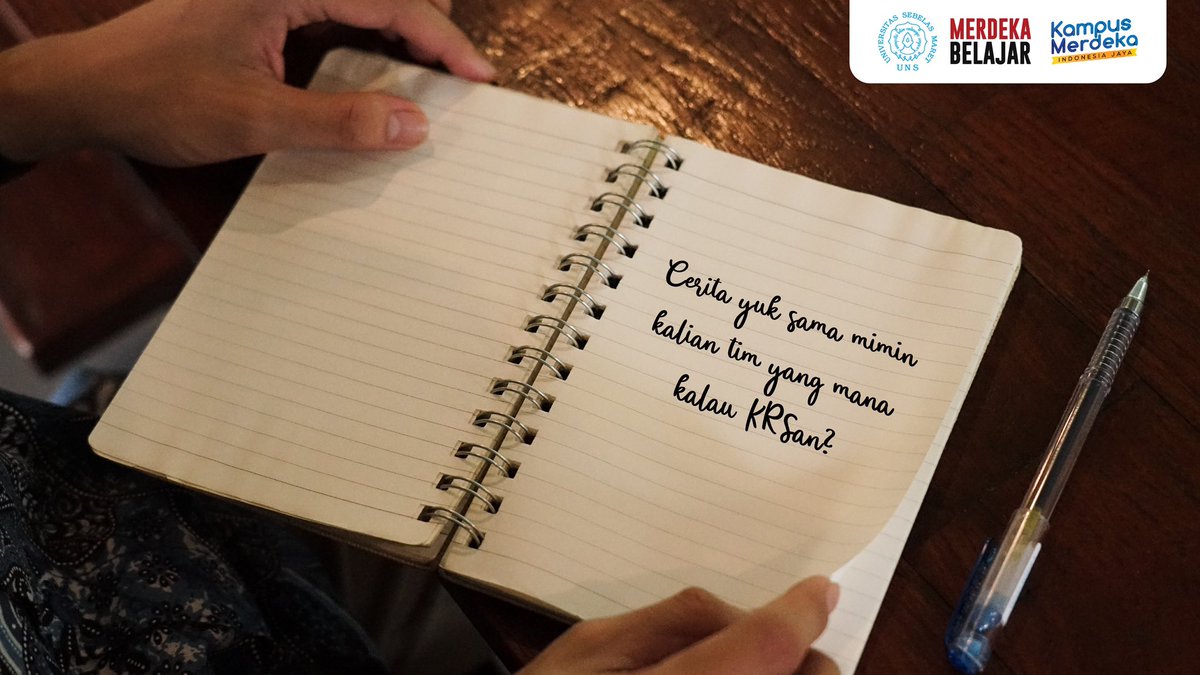 UNIVERSITAS SEBELAS MARET
UNS
MERDEKA
BELAJAR
Kampus
Merdeka
INDONESIA JAYA
Cerita yuk sama mimin
kalian tim yang mana
kalau KRSan?